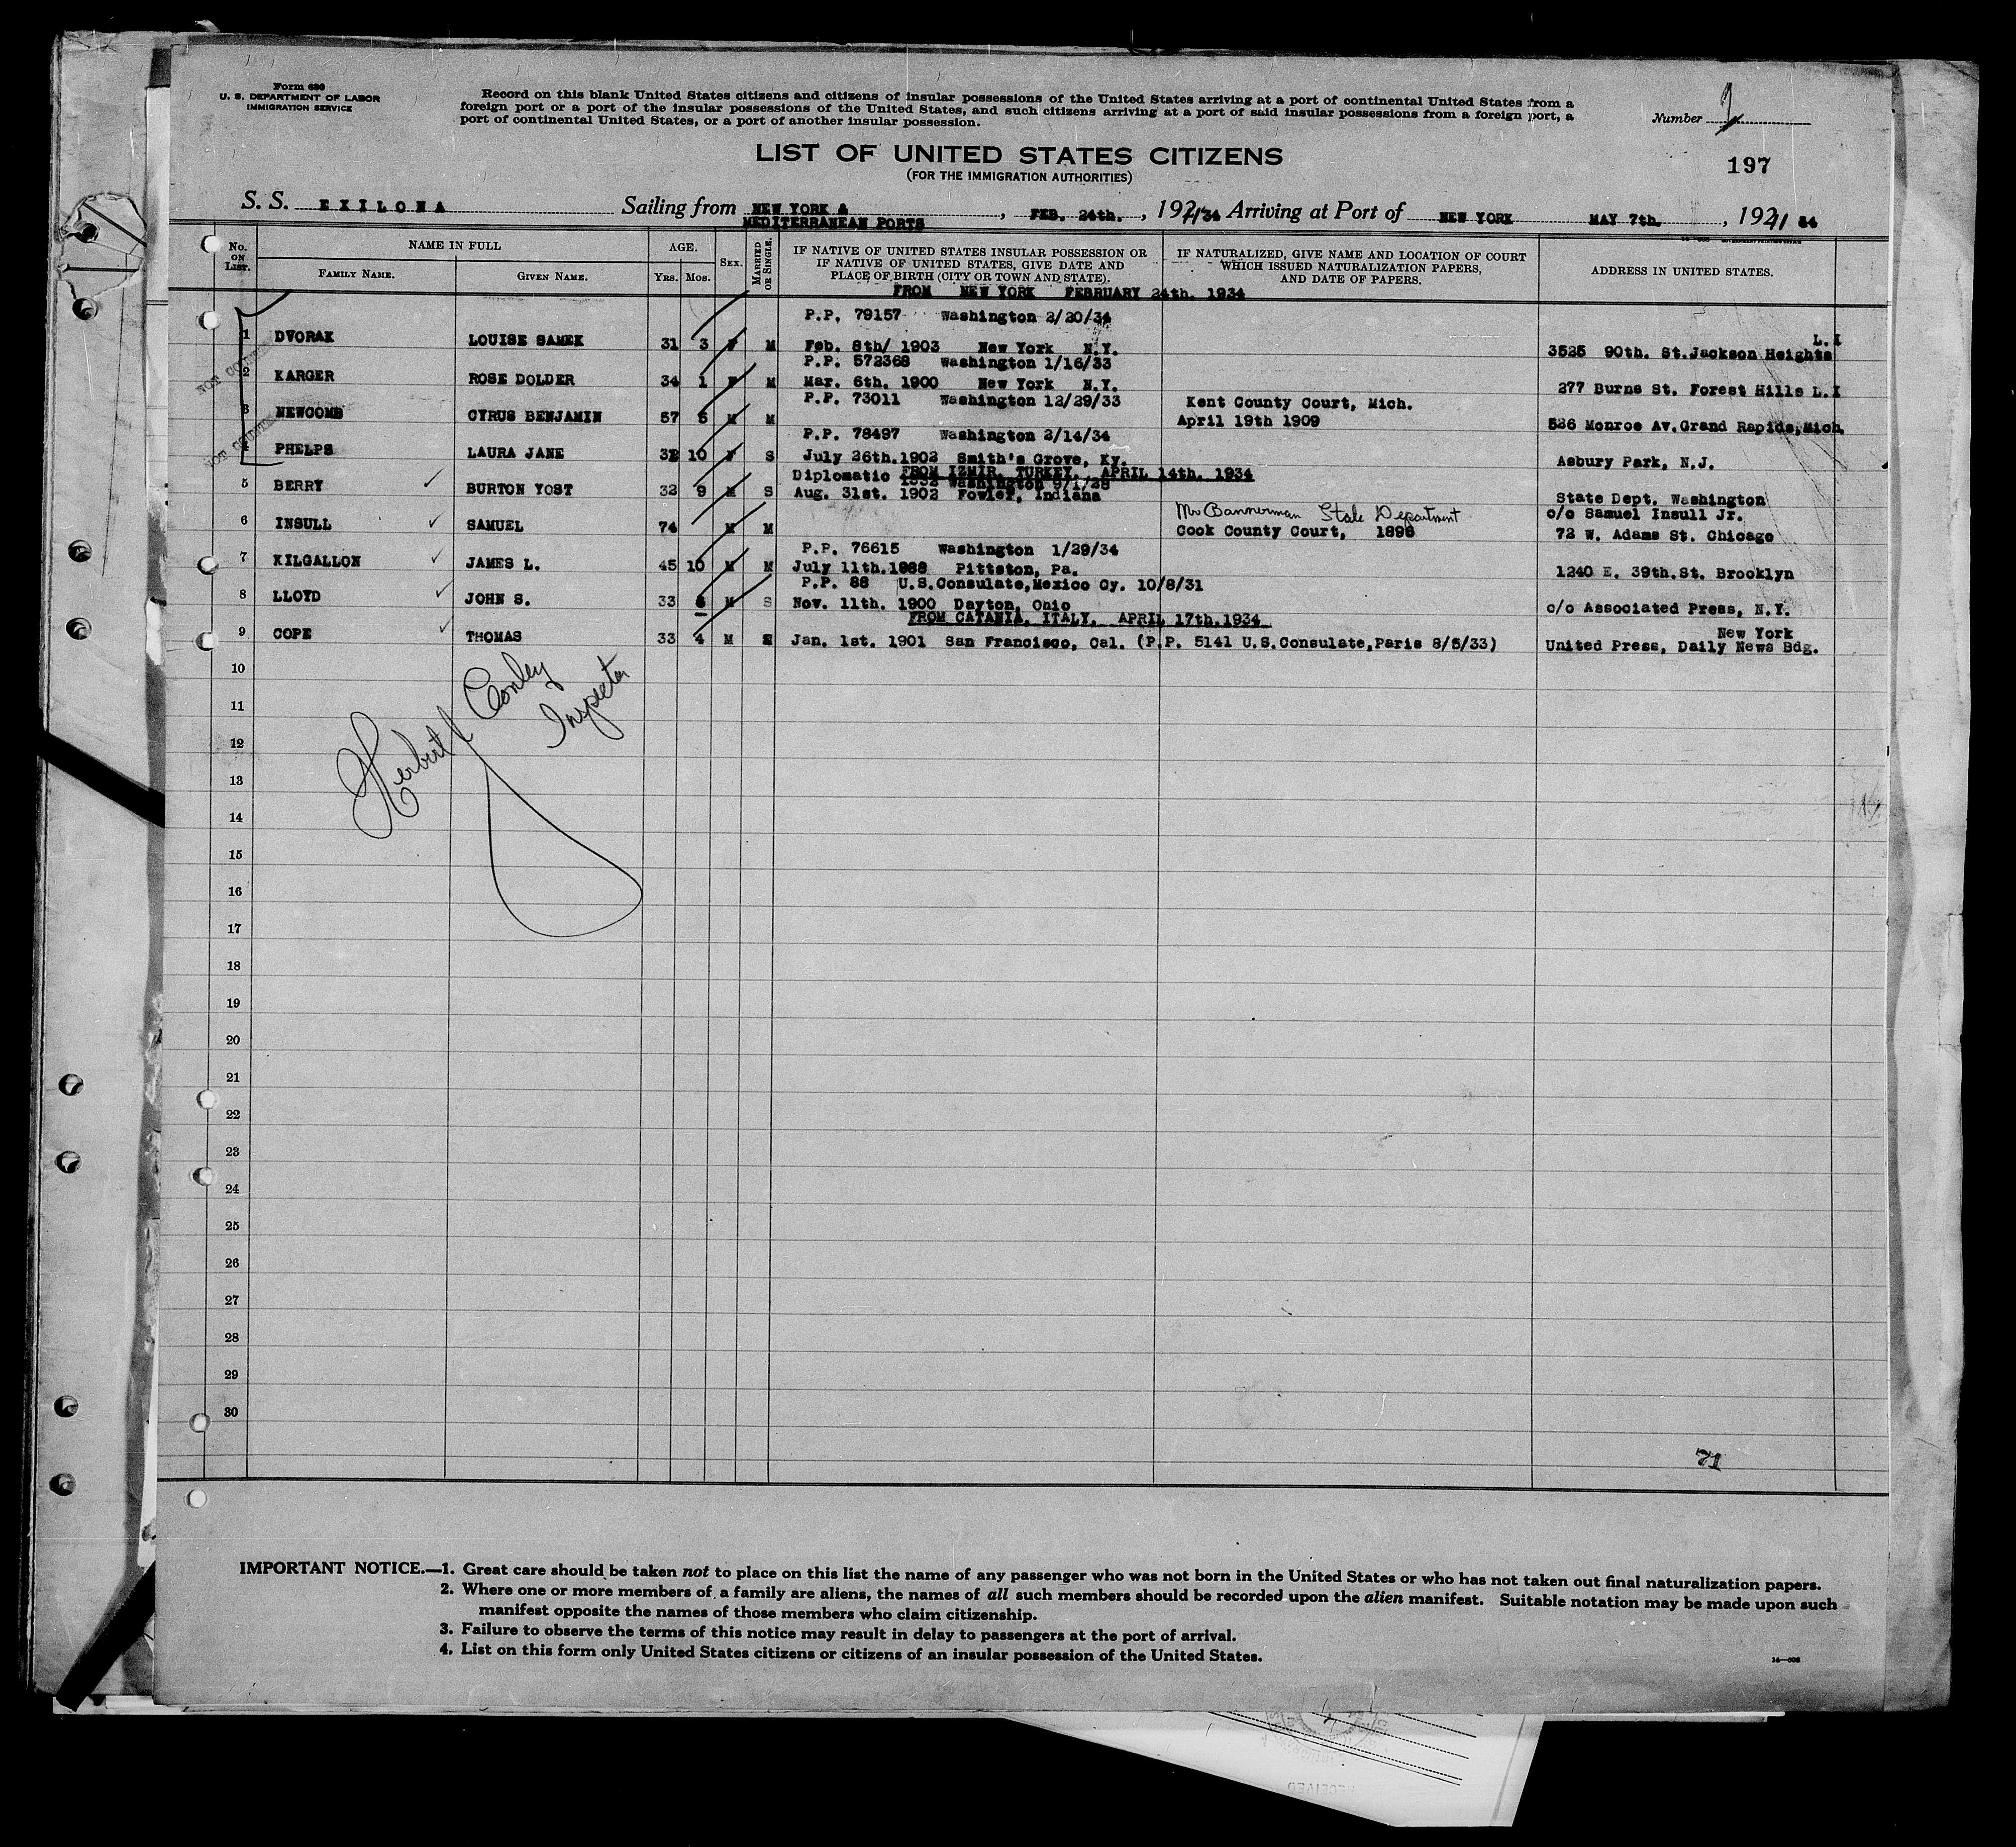 Form 630
U. S. DEPARTMENT OF LABOR
IMMIGRATION SERVICE
Record on this blank United States citizens and citizens of insular possessions of the United States arriving at a port of continental United States from a
foreign port or a port of the insular possessions of the United States, and such citizens arriving at a port of said insular possessions from a foreign port, a
port of continental United States, or a port of another insular possession.
Number
LIST OF UNITED STATES CITIZENS
(FOR THE IMMIGRATION AUTHORITIES)
197
S. S. EXILONA Sailing from NEW YORK & MEDITERRANEAN PORTS, FEB. 24th., 1934 Arriving at Port of NEW YORK MAY 7th., 192 34
No. ON LIST. NAME IN FULL AGE. SEX. MARRIED OR SINGLE. IF NATIVE OF UNITED STATES INSULAR POSSESSION OR IF NATIVE OF UNITED STATES, GIVE DATE AND PLACE OF BIRTH (CITY OR TOWN AND STATE). IF NATURALIZED, GIVE NAME AND LOCATION OF COURT WHICH ISSUED NATURALIZATION PAPERS, AND DATE OF PAPERS. ADDRESS IN UNITED STATES.
FAMILY NAME. GIVEN NAME. YRS. MOS.
FROM NEW YORK FEBRUARY 24th. 1934
P.P. 79157 Washington 2/20/34
1 DVORAK LOUISE SAMEK 31 3 F M Feb. 8th/ 1903 New York N.Y. 3525 90th. St.Jackson Heights L.I
P.P. 572368 Washington 1/16/33
2 KARGER ROSE DOLDER 34 1 F M Mar. 6th. 1900 New York N.Y. 277 Burns St. Forest Hills L.I
P.P. 73011 Washington 12/29/33 Kent County Court, Mich.
3 NEWCOMB CYRUS BENJAMIN 57 5 M M April 19th 1909 536 Monroe Av.Grand Rapids,Mich.
P.P. 78497 Washington 2/14/34
4 PHELPS LAURA JANE 10 F S July 26th.1902 Smith's Grove, Ky. Asbury Park, N.J.
FROM IZMIR, TURKEY, APRIL 14th. 1934
Diplomatic Washington
5 BERRY BURTON YOST 32 9 M S Aug. 31st. 1902 Fowler, Indiana State Dept. Washington
Mr Bannerman State Department c/o Samuel Insull Jr.
6 INSULL SAMUEL 74 M M Cook County Court, 1896 72 W. Adams St. Chicago
P.P. 76615 Washington 1/29/34
7 KILGALLON JAMES L. 45 10 M M July 11th.1888 Pittston, Pa. 1240 E. 39th.St. Brooklyn
P.P. 88 U.S.Consulate,Mexico Cy. 10/8/31
8 LLOYD JOHN S. 33 M S Nov. 11th. 1900 Dayton, Ohio c/o Associated Press, N.Y.
FROM CATANIA, ITALY, APRIL 17th.1934
New York
9 COPE THOMAS 33 4 M Jan. 1st. 1901 San Francisco, Cal. (P.P. 5141 U.S.Consulate,Paris 8/5/33) United Press, Daily News Bdg.
10
11
12
13
14
15
16
17
18
19
20
21
22
23
24
25
26
27
28
29
30
NOT COUNTED
Herbert J Conley
Inspector
71
IMPORTANT NOTICE.—1. Great care should be taken not to place on this list the name of any passenger who was not born in the United States or who has not taken out final naturalization papers.
2. Where one or more members of a family are aliens, the names of all such members should be recorded upon the alien manifest. Suitable notation may be made upon such
manifest opposite the names of those members who claim citizenship.
3. Failure to observe the terms of this notice may result in delay to passengers at the port of arrival.
4. List on this form only United States citizens or citizens of an insular possession of the United States.
14—608
RECEIVED